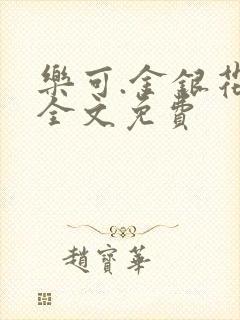 樂可.金銀花
全文免費
趙寶華